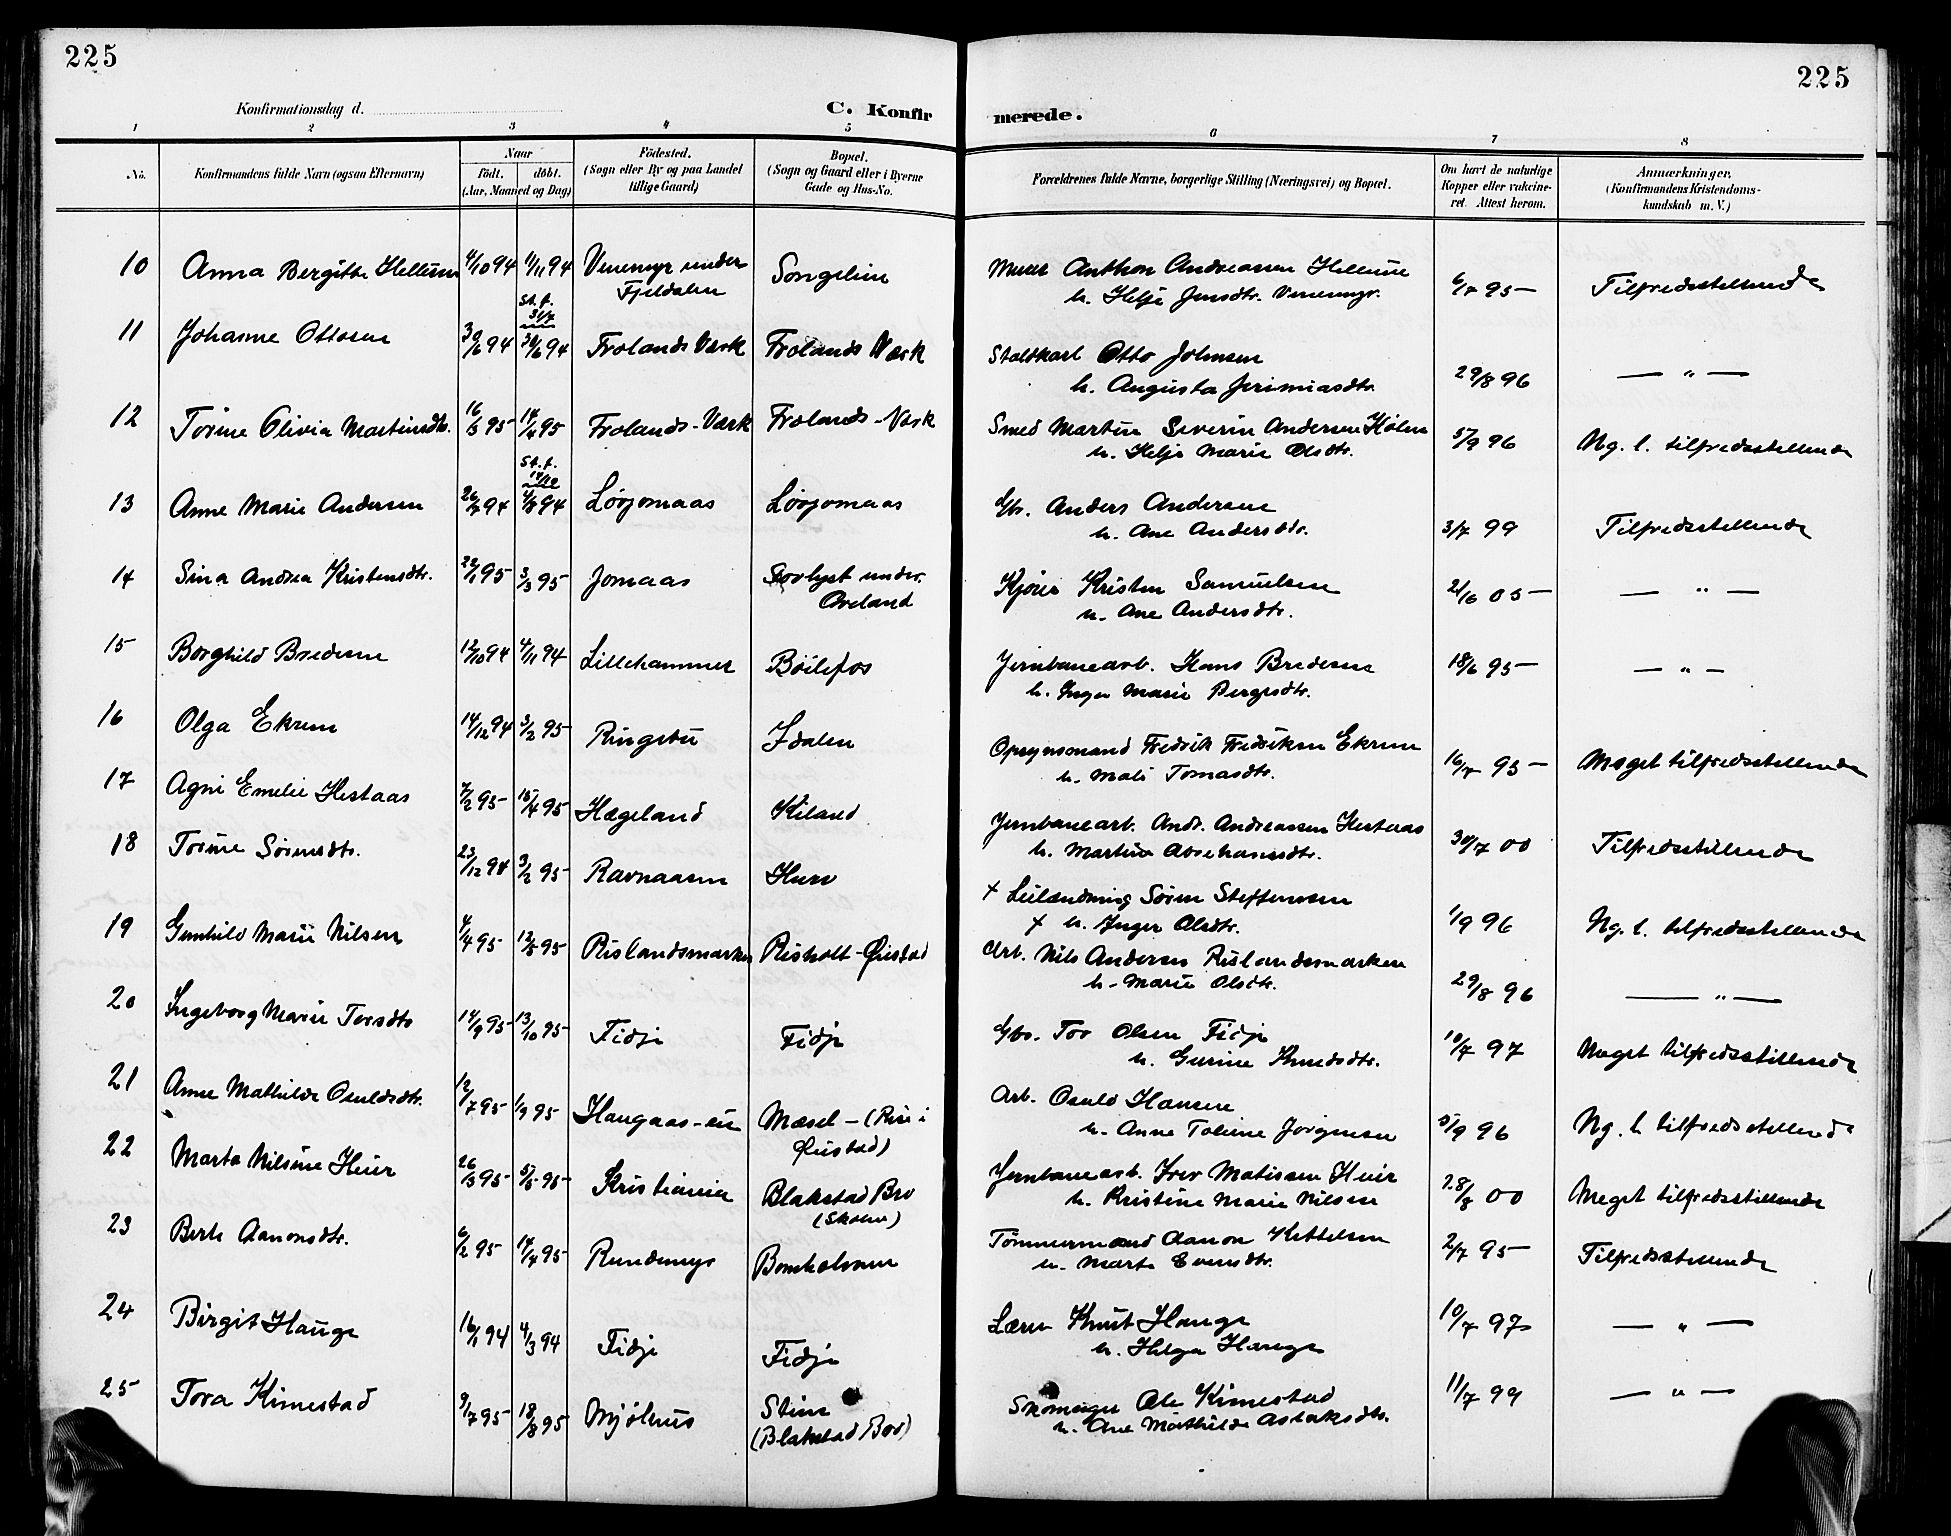 225
225
Konfirmationsdag d.
C. Konfir
merede.
1 2 3 4 5
6 7 8
No.
Konfirmandens fulde Navn (ogsaa Efternavn)
Naar
födt. döbt.
(Aar, Maaned og Dag)
Födested.
(Sogn eller By og paa Landet
tillige Gaard)
Bopæl.
(Sogn og Gaard eller i Byerne
Gade og Hus-No.
Forældrenes fulde Navne, borgerlige Stilling (Næringsvei) og Bopæl.
Om havt de naturlige
Kopper eller vakcine-
ret. Attest herom.
Anmærkninger.
(Konfirmandens Kristendoms-
kundskab m. V.)
10 Anna Bergitte Hellum 4/10 94 11/11 94 Venemyr under Fjeldalen Songelien
Murer Anthon Andreassen
h. Helje Jensdtr. Venemyr. 6/7 95 Tilfredsstillende
St. f. 31/7
11 Johanne Ottosen 30/6 94 94 Frolands Værk Frolands Værk
Staldkarl Otto Johnsen
h. Augusta Jerimiasdtr. 29/8 96 — " —
12 Torine Olivia Martinsdtr. 16/3 95 14/4 95 Frolands-Værk Frolands-Værk
Smed Martin Severin Andersen Holm
h. Helje Marie Olsdtr. 5/9 96 Ng. l. tilfredsstillende
St. f.
13 Anne Marie Andersen 26/7 94 94 Løvjomaas Løvjomaas
Gbr. Anders Andersen
h. Ane Andersdtr. 3/7 99 Tilfredsstillende
14 Sina Andrea Kristensdtr. 22/1 95 3/3 95 Jomaas under Oveland
Kristen Samuelsen
h. Ane Andersdtr. 21/6 05 — " —
15 Borghild Bredesen 12/10 94 4/11 94 Lillehammer Böilefos
Jernbanearb. Hans Bredesen
h. Inger Marie 18/6 95 — " —
16 Olga Ekren 14/12 94 3/2 95 Ringebu Idalen
Opsynsmand Fredrik Fredriksen Ekren
h. Mali Tomasdtr. 16/7 95 Meget tilfredsstillende
17 Agni Emelie Hestaas 7/2 95 15/4 95 Hægeland Kiland
Jernbanearb. Andr. Andreassen Hestaas
h. Martine Abrahamsdtr. 30/7 00 Tilfredsstillende
18 Torine Sörensdtr. 23/12 94 3/2 95 Ravnaasen Hurv
+ Leilænding Sören Steffensen
+ h. Inger Olsdtr. 1/9 96 Ng. l. tilfredsstillende
19 Gunhild Marie Nilsen 4/4 95 12/5 95 Rislandsmarken Risholt-Øiestad
Arb. Nils Andersen Rislandsmarken
h. Marie Olsdtr. 29/8 96 — " —
20 Ingeborg Marie Torsdtr 14/9 95 13/10 95 Fidje Fidje
Gbr. Tor Olsen Fidje
h. Gurine Knudsdtr. 10/7 97 Meget tilfredsstillende
21 Anne Mathilde Osuldsdtr. 12/7 95 1/9 95 Haugaas-eie Mæsel - (Rise i Øiestad)
Arb. Osuld Hansen
h. Anne Toline Jörgensen 5/9 96 Ng. l. tilfredsstillende
22 Marta Nilsine Heier 26/3 95 5/5 95 Kristiania Blakstad Bro (Skolen)
Jernbanearb. Iver Matissen Heier
h. Kristine Marie Nilsen 28/8 00 Meget tilfredsstillende
23 Berte Aanonsdtr. 6/2 95 14/4 95 Rundemyr Bomholmen
Tömmermand Aanon Kettelsen
h. Marte Evensdtr. 2/7 95 Tilfredsstillende
24 Birgit Hauge 16/1 94 4/3 94 Fidje Fidje
Lærer Knut Hauge
h. Helga Hauge 10/7 97 — " —
25 Tora Kimestad 9/7 95 18/8 95 Mjölhus Stien (Blakstad Bro)
Skomager Ole Kimestad
h. Ane Mathilde Aslaksdtr. 11/7 99 — " —